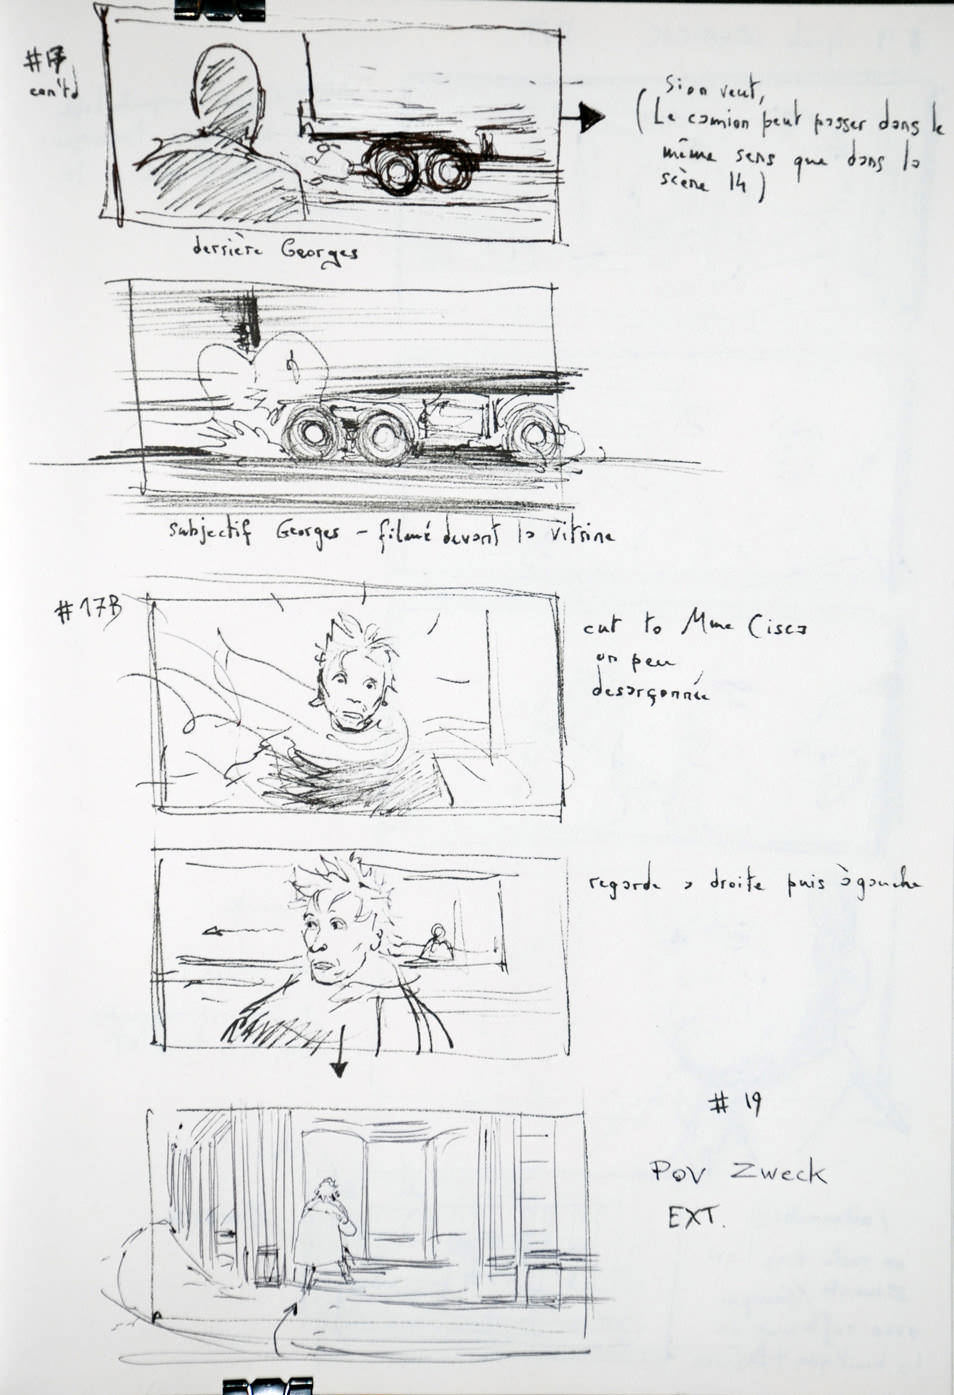 #17
con'td
Si on veut,
(Le camion peut passer dans le
même sens que dans la
scène 14)
derrière Georges
subjectif Georges - filmé devant la vitrine
#17B
cut to Mme Cisca
un peu
desarçonnée
regarde a droite puis à gauche
# 19
POV Zweck
EXT.